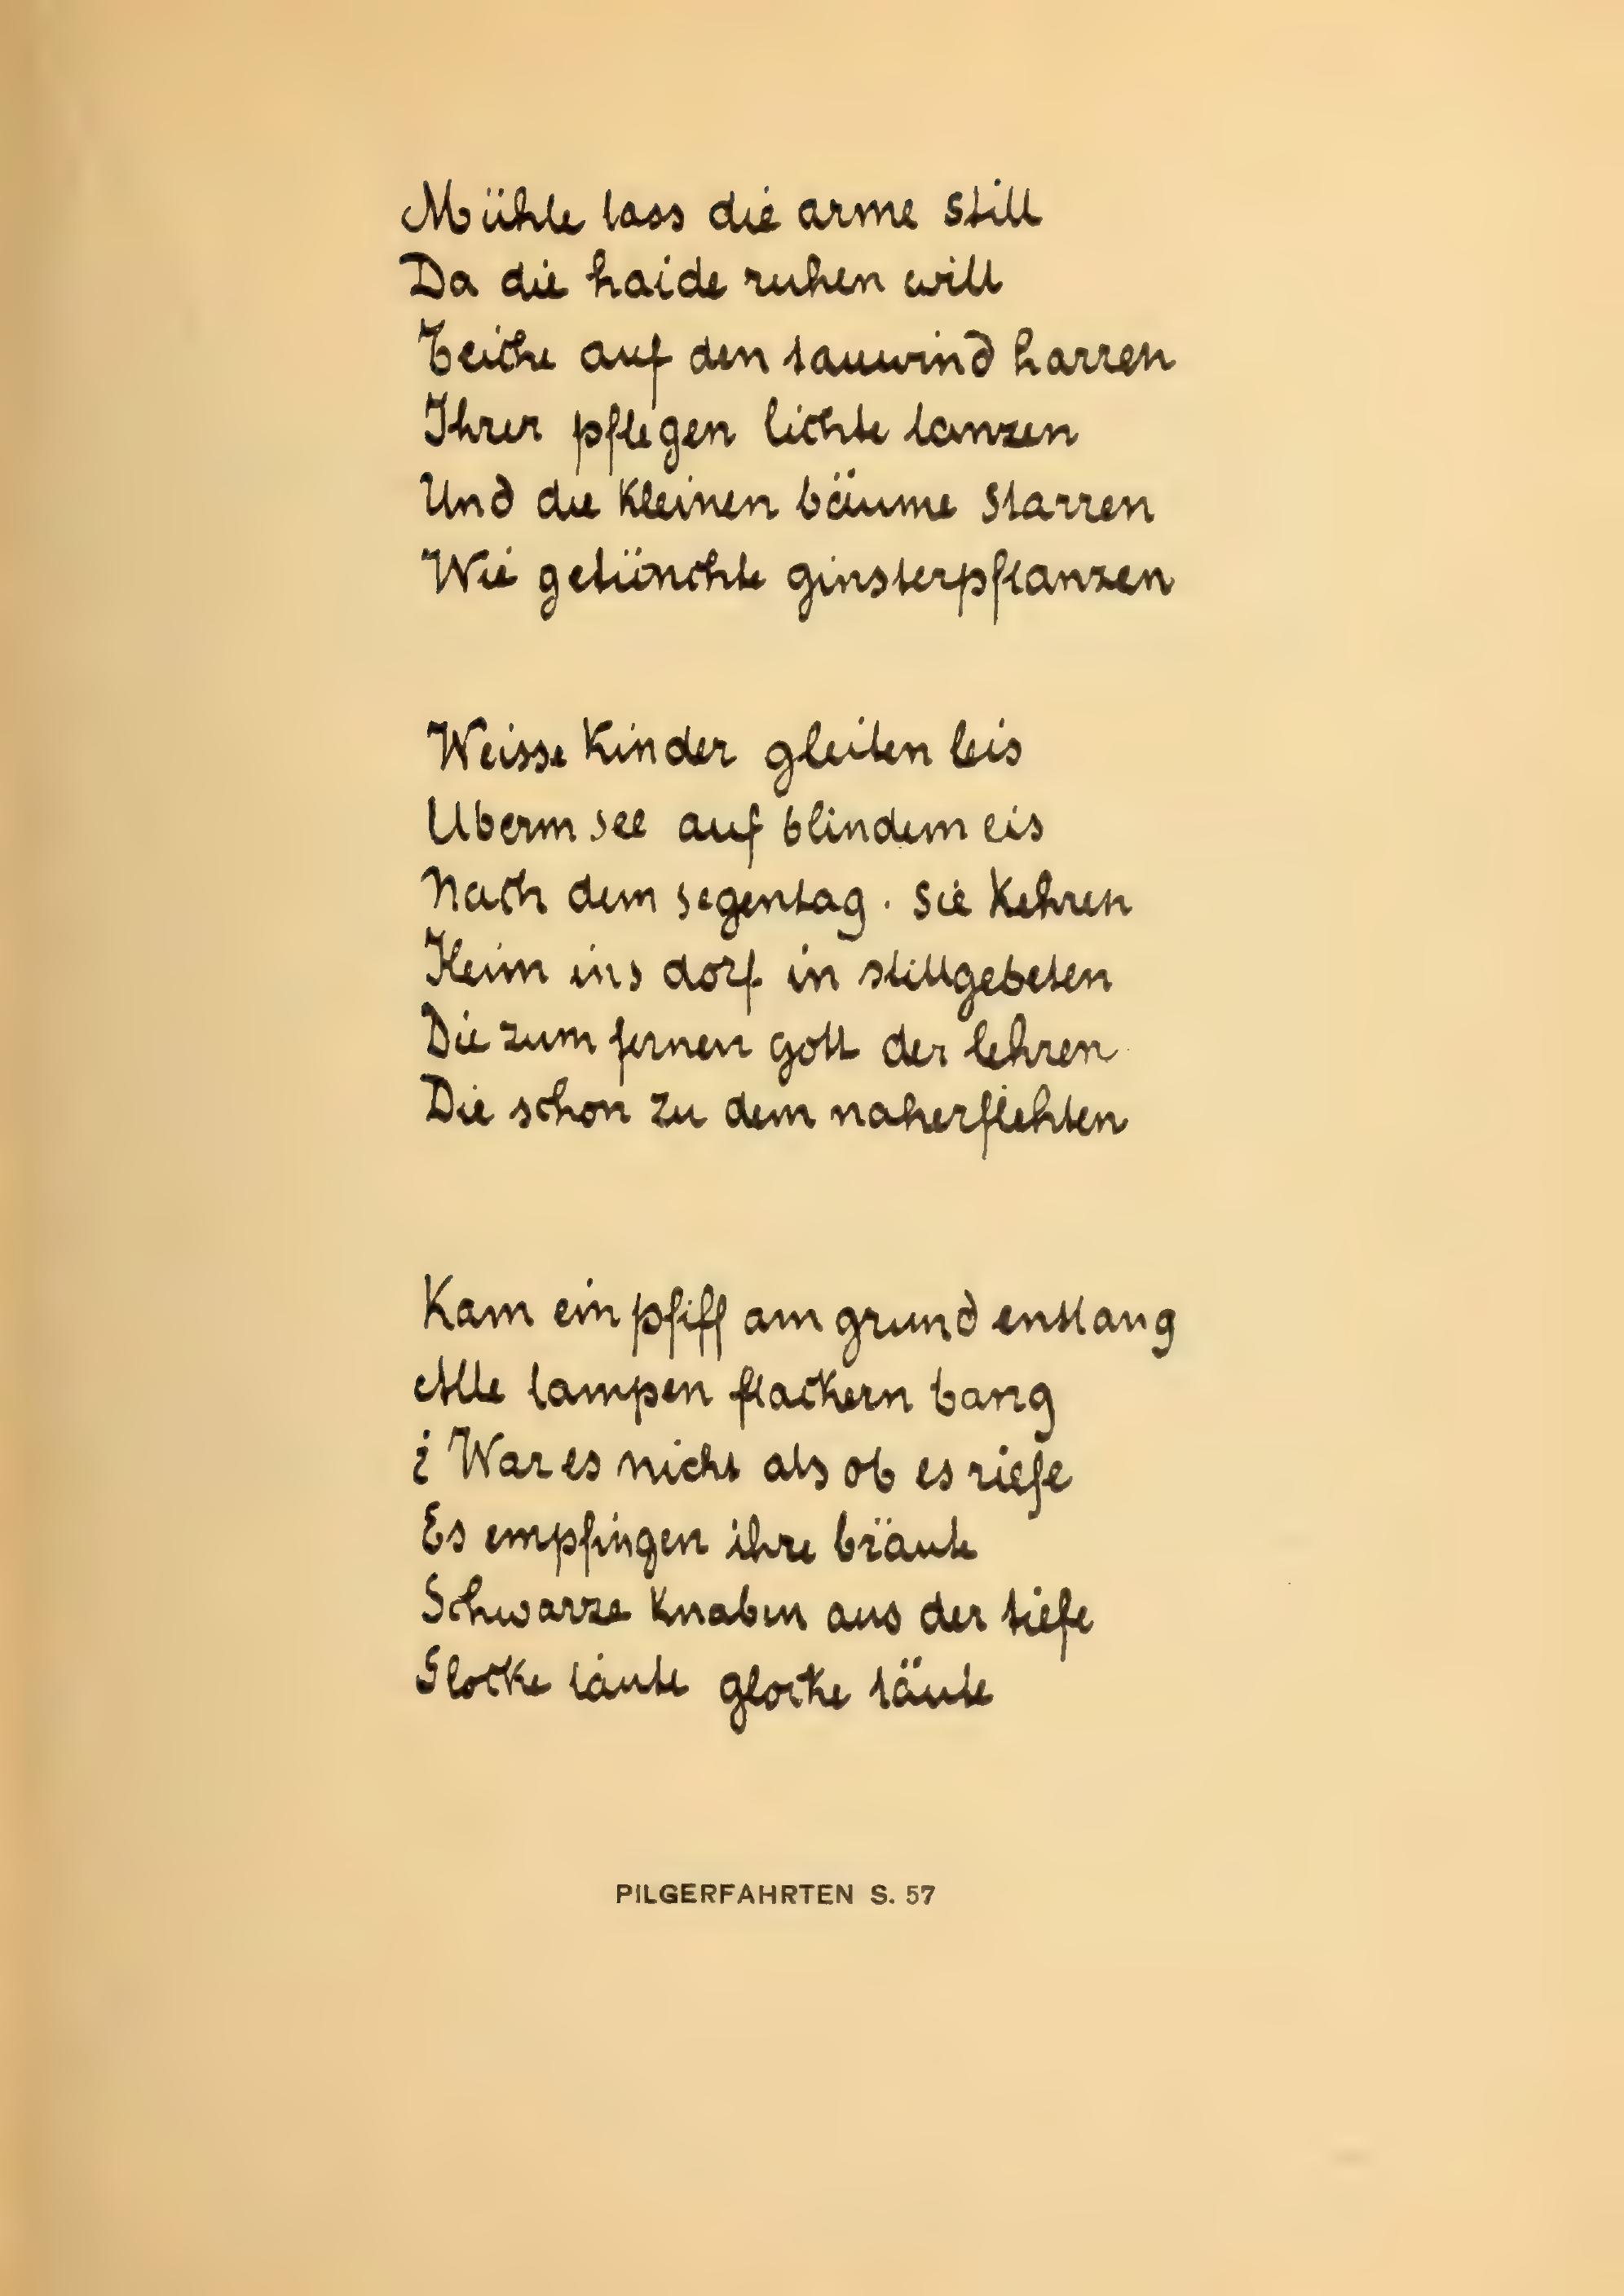 Mühle lass die arme still
Da die haide ruhen will
Teiche auf den tauwind harren
Ihrer pflegen lichte lanzen
Und die kleinen bäume starren
Wie getünchte ginsterpflanzen
Weisse kinder gleiten leis
Überm see auf blindem eis
Nach dem segentag · sie kehren
Heim ins dorf in stillgebeten
Die zum fernen gott der lehren
Die schon zu dem naherflehten
Kam ein pfiff am grund entlang
Alle lampen flackern bang
¿ War es nicht als ob es riefe
Es empfingen ihre bräute
Schwarze knaben aus der tiefe
Glocke läute glocke läute
PILGERFAHRTEN S. 57